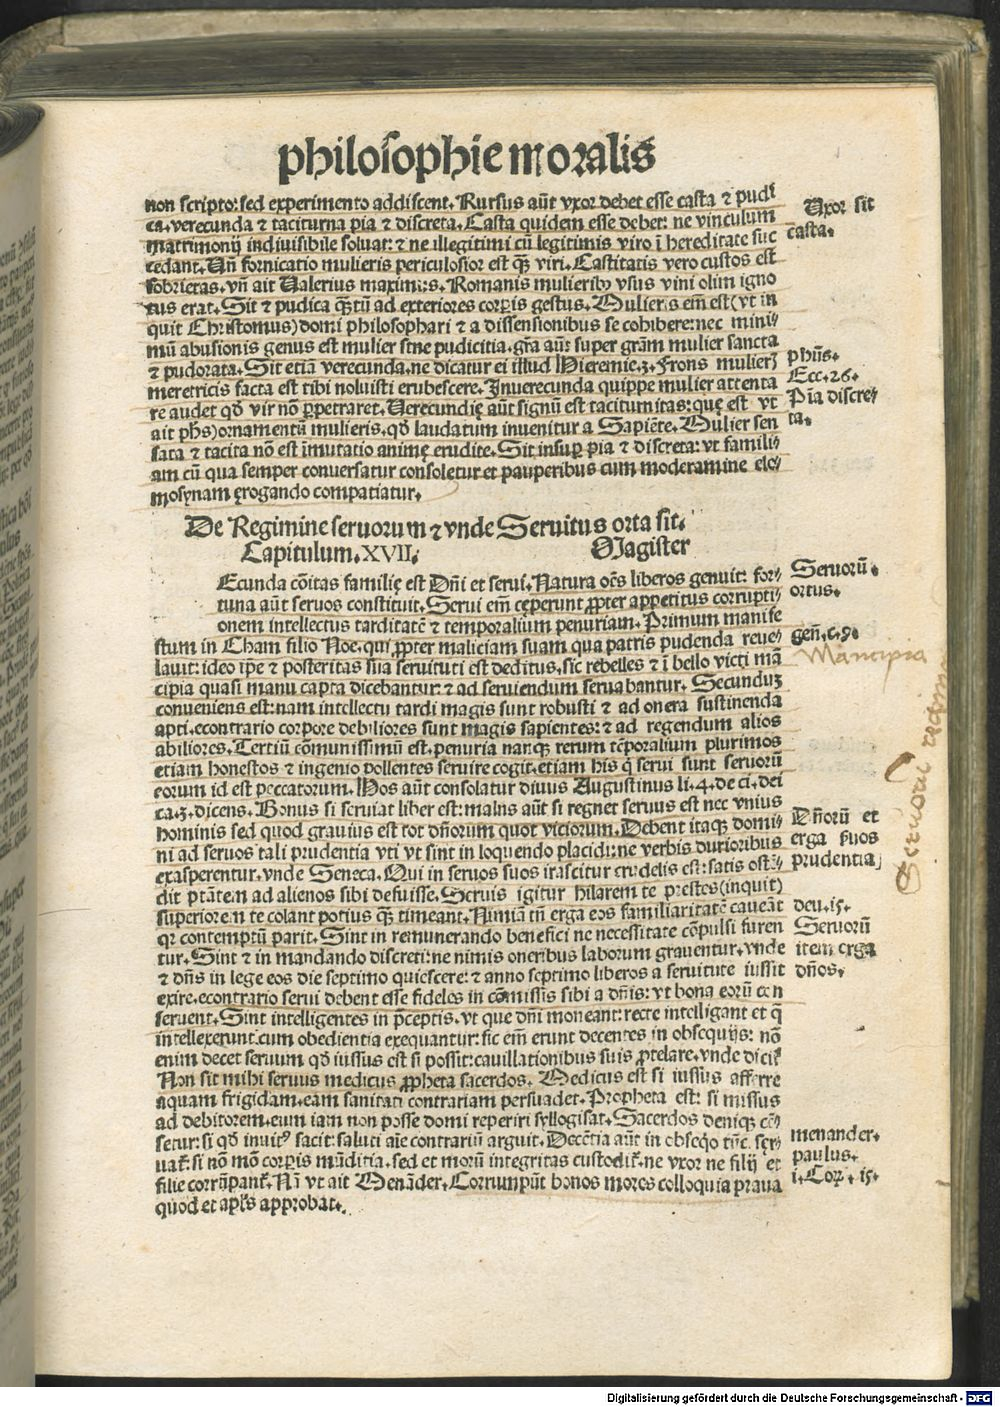 philosophie moralis
non scripto: sed experimento addiscent. Rursus aūt vxor debet esse casta ⁊ pudi
ca. verecunda ⁊ taciturna pia ⁊ discreta. Casta quidem esse debet: ne vinculum
matrimonij indiuisibile soluat: ⁊ ne illegitimi cū legitimis viro ī hereditate suc
cedant. Uñ fornicatio mulieris periculosior est q̄ʒ viri. Castitatis vero custos est
sobrietas. vñ ait Ualerius maximus. Romanis mulierib⁹ vsus vini olim igno
tus erat. Sit ⁊ pudica q̄ʒtū ad exteriores corꝑis gestus. Mulieris em̄ est (vt in
quit Christomus) domi philosophari ⁊ a dissensionibus se cohibere: nec mini⸗
mū abusionis genus est mulier sine pudicitia. gr̄a aūt super grām mulier sancta
⁊ pudorata. Sit etiā verecunda. ne dicatur ei illud Hieremie. 3. Frons mulieris
meretricis facta est tibi noluisti erubescere. Inuerecunda quippe mulier attenta
re audet qd̄ vir nō ꝑpetraret. Uerecundię aūt signū est taciturnitas: quę est vt
ait ph̄s) ornamentū mulieris. qd̄ laudatum inuenitur a Sapiēte. Mulier sen
sata ⁊ tacita nō est īmutatio animę erudite. Sit insuꝑ pia ⁊ discreta: vt famili⸗
am cū qua semper conuersatur consoletur et pauperibus cum moderamine ele⸗
mosynam ęrogando compatiatur.
Uxor sit
casta.
ph̄us.
Ecc. 26.
Pīa discre⸗
ta.
De Regimine seruorum ⁊ vnde Seruitus orta sit.
Capitulum. XVII. Magister
Ecunda cōitas familię est Dn̄i et serui. Natura oēs liberos genuit: for⸗
tuna aūt seruos constituit. Serui em̄ cęperunt ꝓpter appetitus corrupti⸗
onem intellectus tarditatē ⁊ temporalium penuriam. Primum manife
stum in Cham filio Noe. qui ꝓpter maliciam suam qua patris pudenda reue⸗
lauit: ideo ip̄e ⁊ posteritas sua seruituti est deditus. sic rebelles ⁊ ī bello victi mā
cipia quasi manu capta dicebantur: ⁊ ad seruiendum seruabantur. Secundum
conueniens est: nam intellectu tardi magis sunt robusti ⁊ ad onera sustinenda
apti. econtrario corpore debiliores sunt magis sapientes: ⁊ ad regendum alios
abiliores. Tertiū cōmunissimū est. penuria nanq̄ʒ rerum tēporalium plurimos
etiam honestos ⁊ ingenio pollentes seruire cogit. etiam his q̄ serui sunt seruorū
eorum id est peccatorum. Hos aūt consolatur diuus Augustinus li. 4. de ci. dei
ca. 3. dicens. Bonus si seruiat liber est: malus aūt si regnet seruus est nec vnius
hominis sed quod grauius est tot dn̄orum quot viciorum. Debent itaqʒ domi⸗
ni ad seruos tali prudentia vti vt sint in loquendo placidi: ne verbis durioribus
exasperentur. vnde Seneca. Qui in seruos suos irascitur crudelis est: satis ostē⸗
dit ptātem ad alienos sibi defuisse. Seruis igitur hilarem te prestes (inquit)
superiorem te colant potius q̄ʒ timeant. Nimiā tn̄ erga eos familiaritatē caueāt
qr contemptū parit. Sint in remunerando benefici ne necessitate cōpulsi furen
tur. Sint ⁊ in mandando discreti: ne nimis oneribus laborum grauentur. vnde
⁊ dn̄s in lege eos die septimo quiescere: ⁊ anno septimo liberos a seruitute iussit
exire. econtrario serui debent esse fideles in cōmissis sibi a dn̄is: vt bona eorū con
seruent. Sint intelligentes in p̄ceptis. vt que dn̄i moneant: recte intelligant et q̄
intellexerunt cum obedientia exequantur: sic em̄ erunt decentes in obsequijs: nō
enim decet seruum qd̄ iussus est si possit: cauillationibus suis ꝓtelare. vnde dicit
Non sit mihi seruus medicus ꝓpheta sacerdos. Medicus est si iussus afferre
aquam frigidam. eam sanitati contrariam persuadet. Propheta est: si missus
ad debitorem. eum iam non posse domi reperiri syllogisat. Sacerdos deniqʒ cē⸗
setur: si qd̄ inuit⁹ facit: saluti aīe contrariū arguit. Decētia aūt in obseq̄o tūc ser⸗
uat̄: si nō mō corꝑis mūditia. sed et morū integritas custodit̄. ne vxor ne filij et
filie corrūpant̄. Nā vt ait Menāder. Corrumpūt bonos mores colloquia praua
quod et apl̄s approbat.
Seruorū
ortus.
gen̄. c. 9.
Mancipia
Seruorū
Dn̄orū et
erga suos
prudentia
deu. 15.
Seruorū
item erga
dn̄os.
menander.
paulus.
1. Cor. 15.
Digitalisierung gefördert durch die Deutsche Forschungsgemeinschaft - DFG